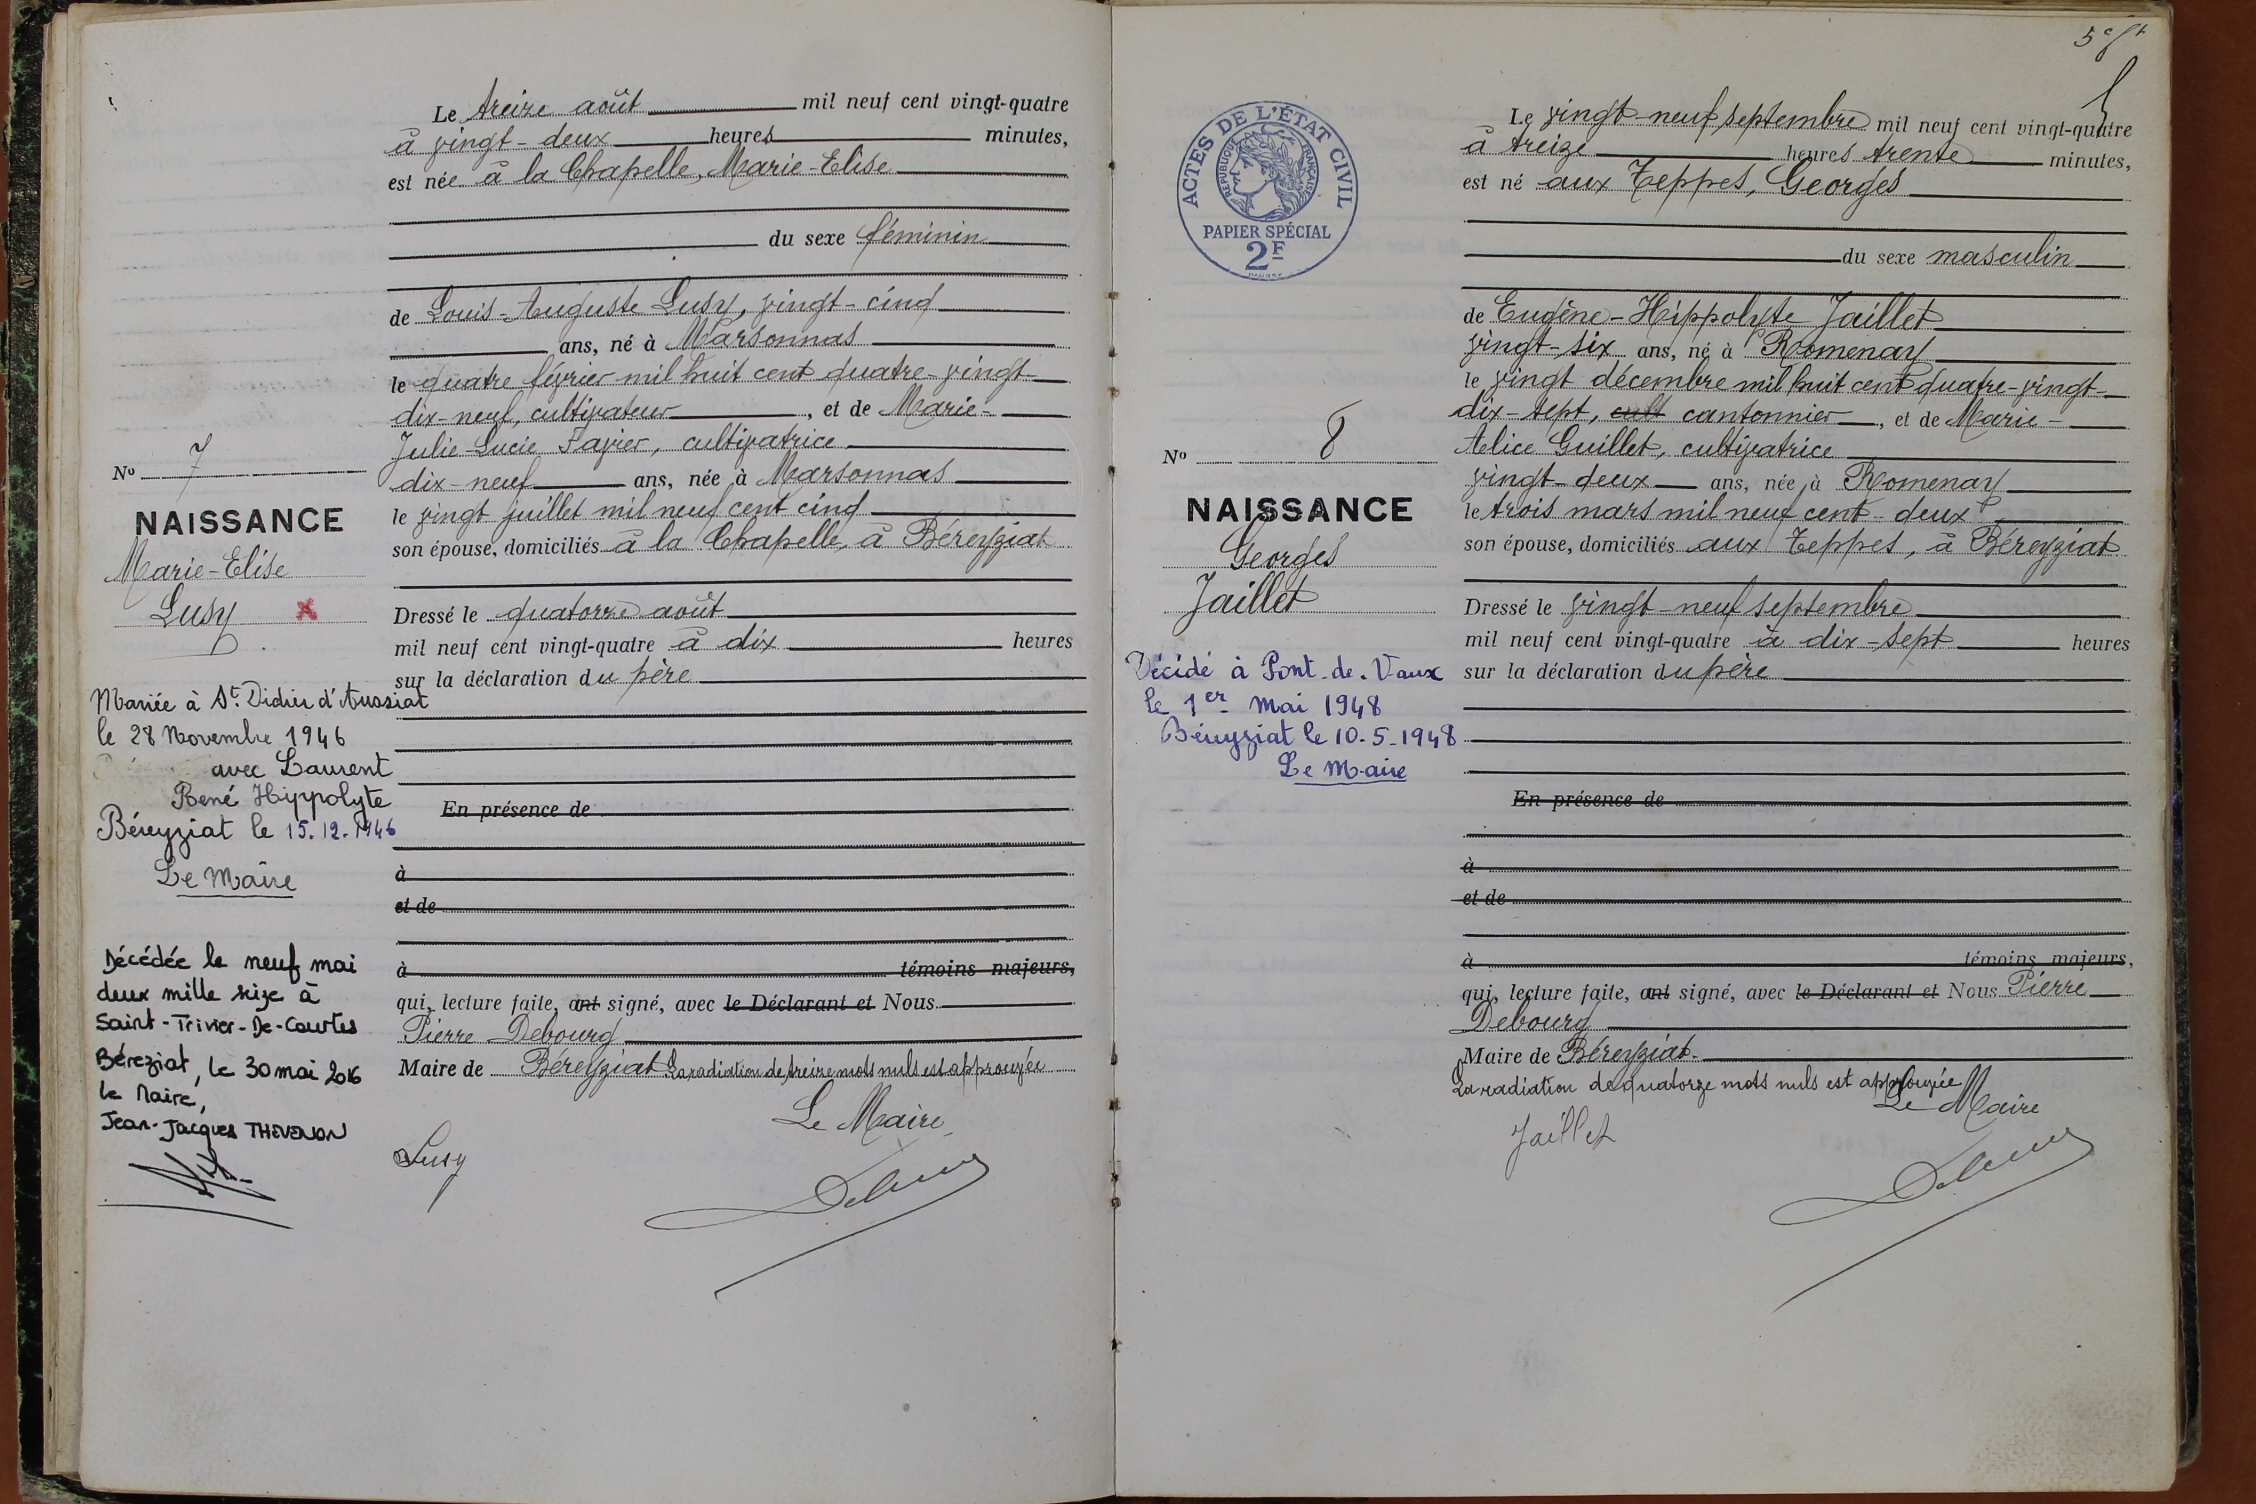 Le treize août mil neuf cent vingt-quatre
à vingt-deux heures minutes,
est née à la Chapelle, Marie-Elise
du sexe féminin
de Louis-Auguste Lusy, vingt-cinq
ans, né à Marsonnas
le quatre février mil huit cent quatre-vingt-
dix-neuf, cultivateur, et de Marie-
Julie-Lucie Favier, cultivatrice
dix-neuf ans, née à Marsonnas
le vingt juillet mil neuf cent cinq
son épouse, domiciliés à la Chapelle, à Béreyziat
Dressé le quatorze août
mil neuf cent vingt-quatre à dix heures
sur la déclaration du père
En présence de
à
et de
à témoins majeurs,
qui, lecture faite, ant signé, avec le Déclarant et Nous
Pierre Debourg
Maire de Béreyziat La radiation de treize mots nuls est approuvée
Le Maire
Lusy
No 7
NAISSANCE
Marie-Elise
Lusy
Mariée à St. Didier d'Aussiat
le 28 Novembre 1946
avec Laurent
René Hippolyte
Béreyziat le 15.12.1946
Le Maire
Décédée le neuf mai
deux mille seize à
Saint-Trivier-De-Courtes
Béreziat, le 30 mai 2016
le Maire,
Jean-Jacques THEVENON
5
ACTES DE L'ÉTAT CIVIL
RÉPUBLIQUE FRANÇAISE
PAPIER SPÉCIAL
2F
Le vingt-neuf septembre mil neuf cent vingt-quatre
à treize heures trente minutes,
est né aux Teppes, Georges
du sexe masculin
de Eugène-Hippolyte Jaillet
vingt-six ans, né à Romenay
le vingt décembre mil huit cent quatre-vingt-
dix-sept, cult cantonnier, et de Marie-
Alice Guillet, cultivatrice
vingt-deux ans, née à Romenay
le trois mars mil neuf cent-deux
son épouse, domiciliés aux Teppes, à Béreyziat
Dressé le vingt-neuf septembre
mil neuf cent vingt-quatre à dix-sept heures
sur la déclaration du père
En présence de
à
et de
à témoins majeurs,
qui, lecture faite, ant signé, avec le Déclarant et Nous Pierre
Debourg
Maire de Béreyziat
La radiation de quatorze mots nuls est approuvée
Le Maire
Jaillet
No 8
NAISSANCE
Georges
Jaillet
Décédé à Pont-de-Vaux
le 1er mai 1948
Béreyziat le 10-5-1948
Le Maire